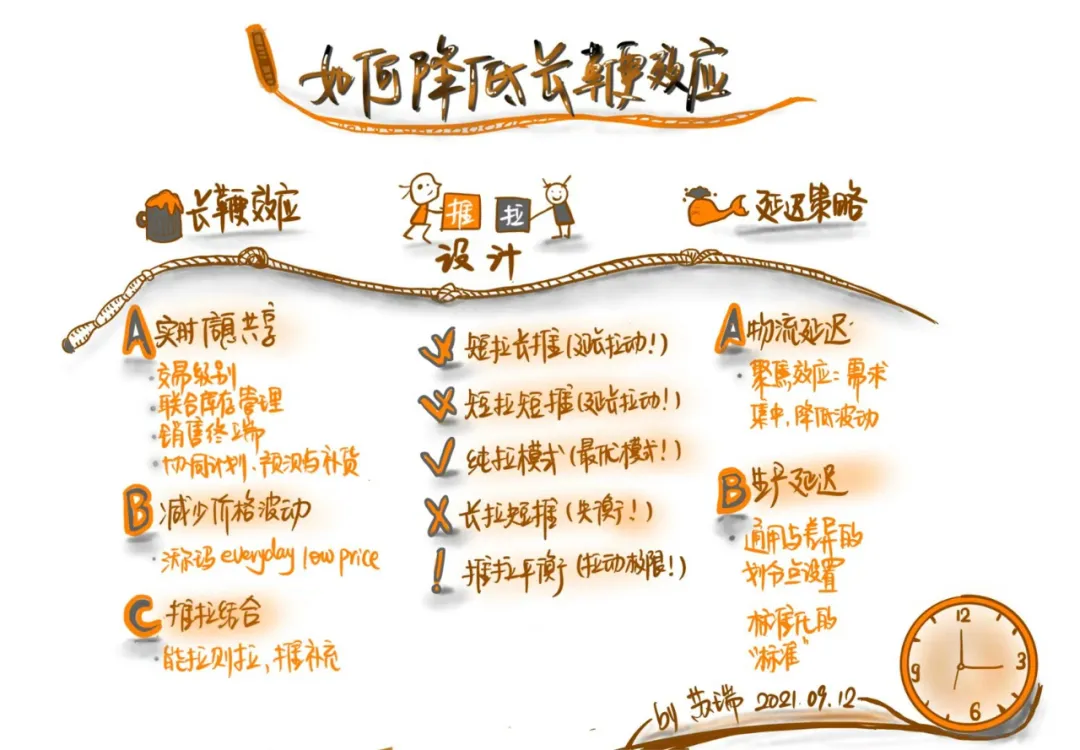 如何降低长鞭效应
长鞭效应
推 拉
设计
延迟策略
A 实时信息共享
·交易级别
·联合库存管理
·销售终端
·协同计划、预测与补货
B 减少价格波动
·沃尔玛 everyday low price
C 推拉结合
·能拉则拉，推补充
短拉长推(延长拉动!)
短拉短推(延长拉动!)
纯拉模式(最优模式!)
X 长拉短推(失衡!)
! 推拉平衡(拉动极限!)
A 物流延迟
·聚焦效应：需求
集中，降低波动
B 生产延迟
·通用与差异的
划分点设置
标准化的
“标准”
12
3
6
9
by 苏瑞 2021.09.12